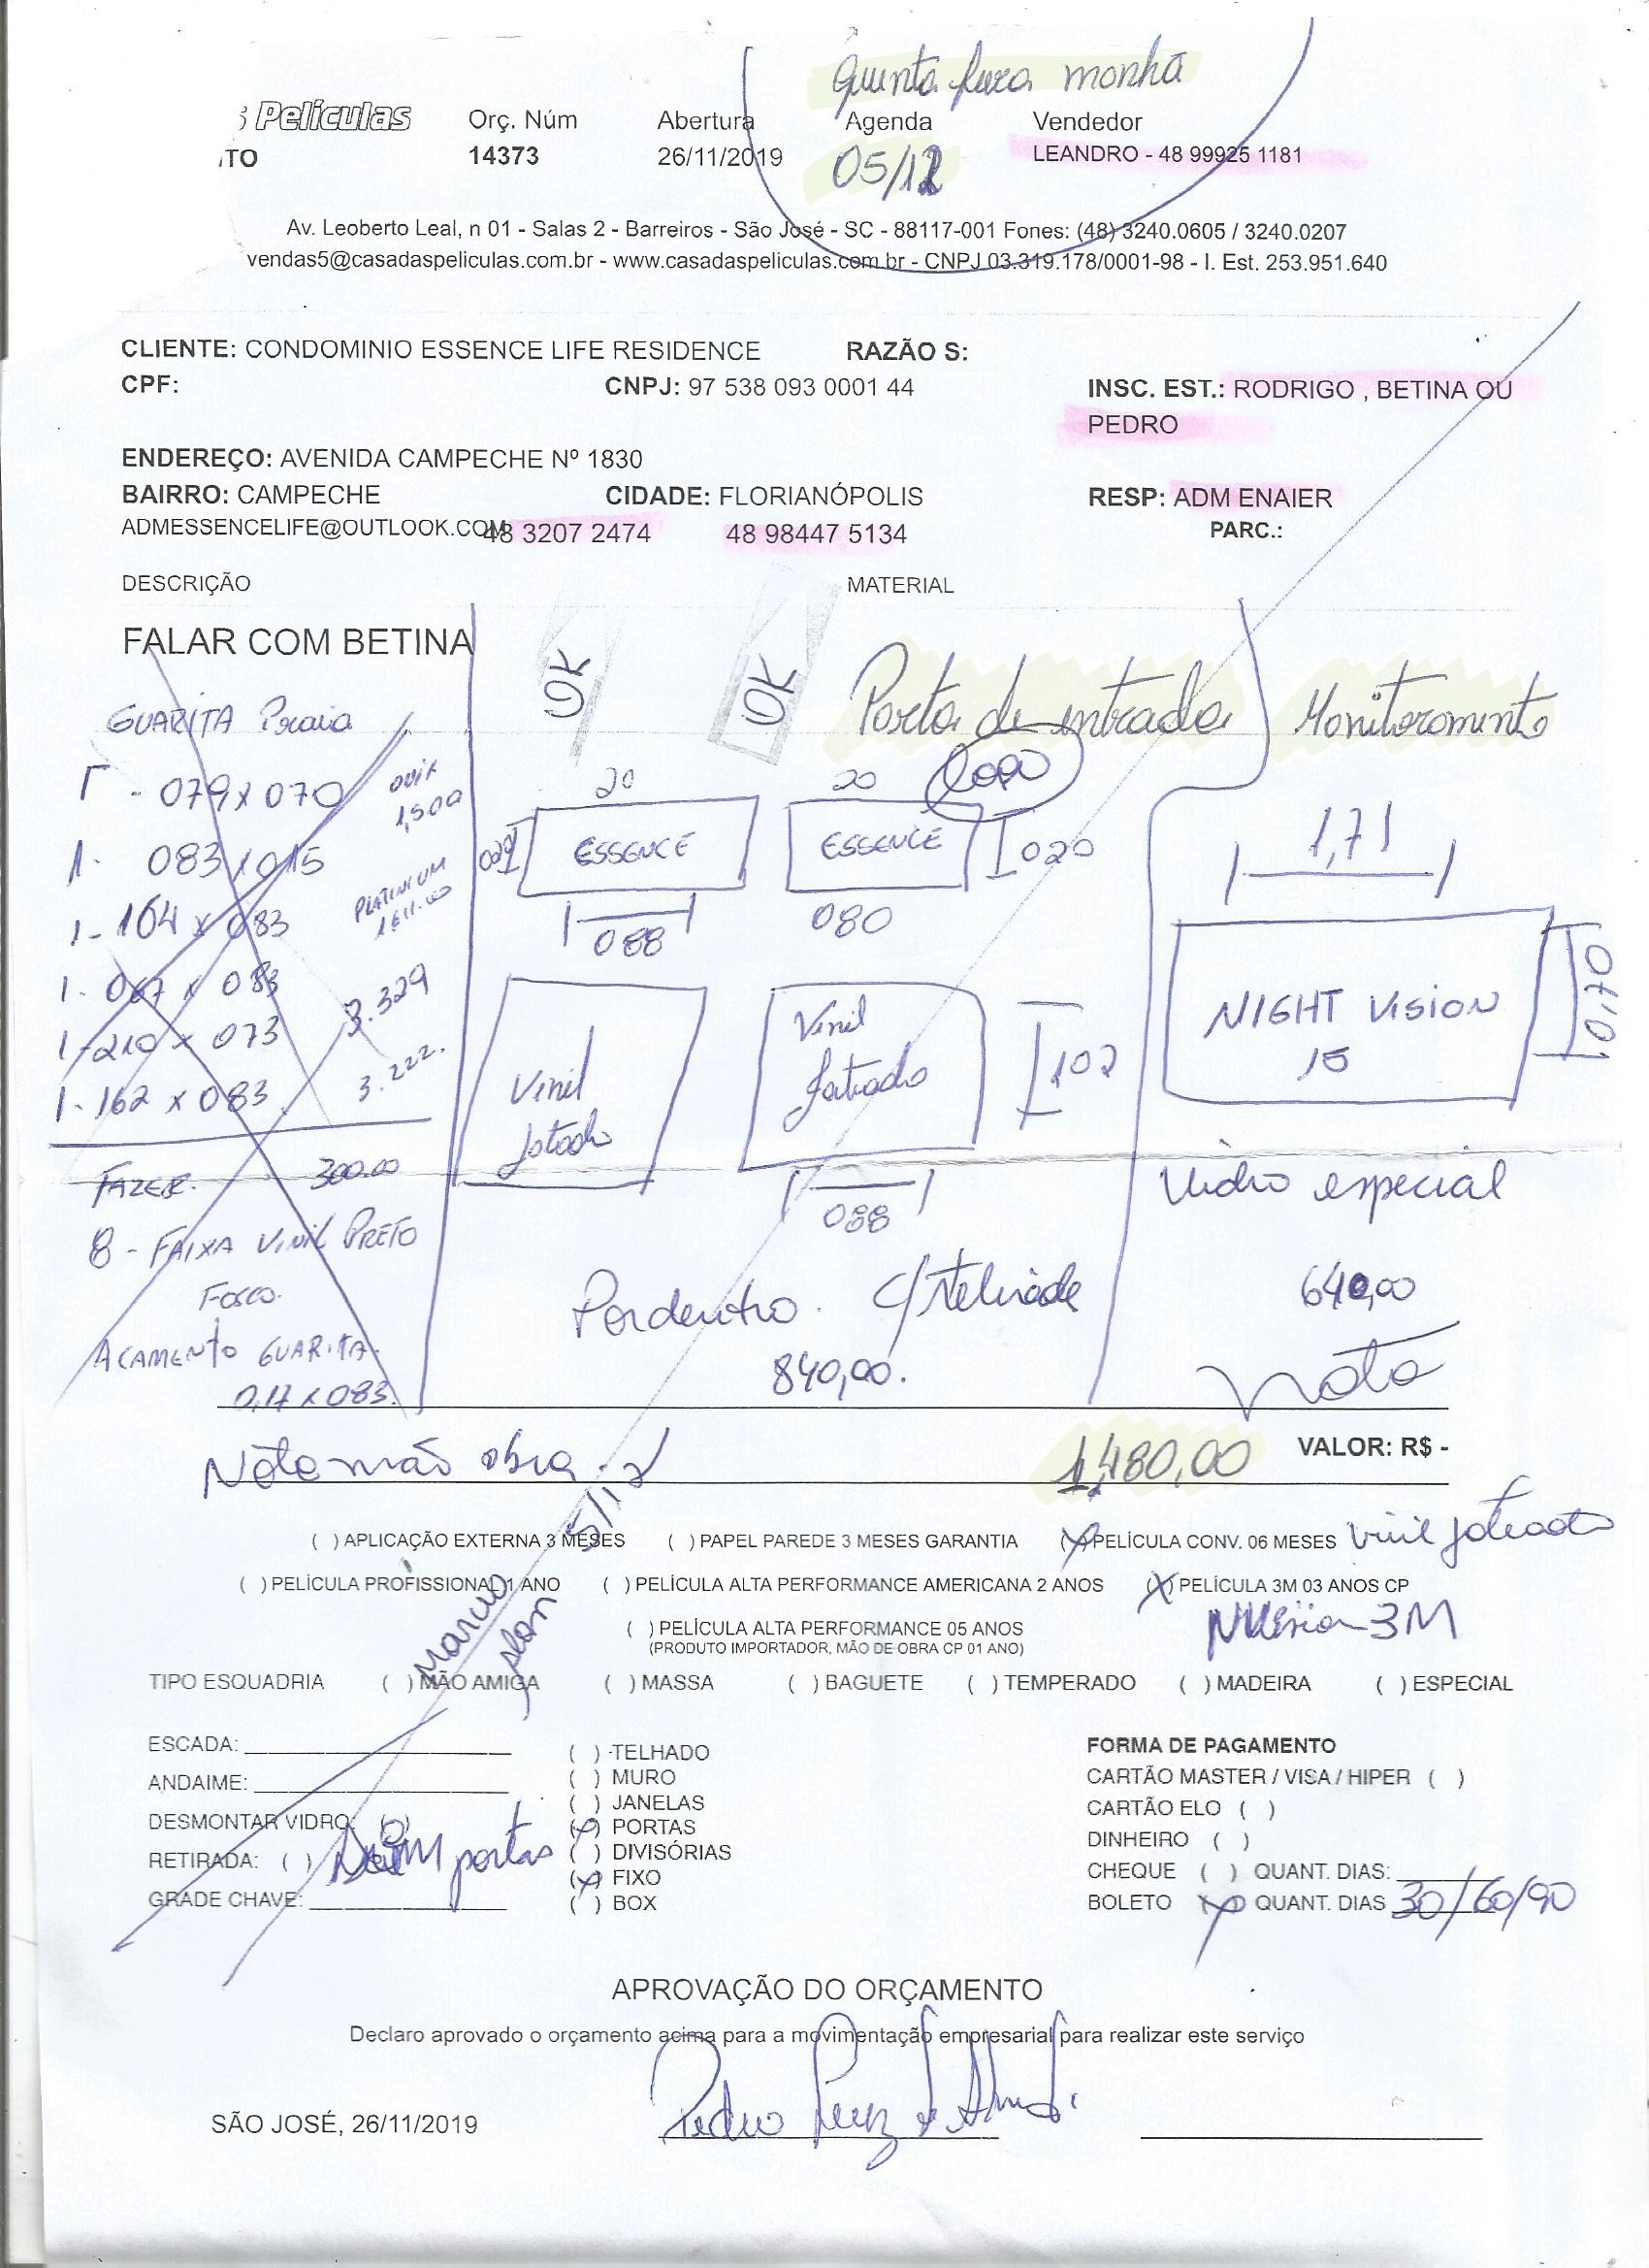 Quinta feira manhã
Películas
Orç. Núm
Abertura
Agenda
Vendedor
14373
26/11/2019
05/12
LEANDRO - 48 99925 1181
Av. Leoberto Leal, n 01 - Salas 2 - Barreiros - São José - SC - 88117-001 Fones: (48) 3240.0605 / 3240.0207
vendas5@casadaspeliculas.com.br - www.casadaspeliculas.com.br - CNPJ 03.319.178/0001-98 - I. Est. 253.951.640
CLIENTE: CONDOMINIO ESSENCE LIFE RESIDENCE RAZÃO S:
CPF: CNPJ: 97 538 093 0001 44 INSC. EST.: RODRIGO , BETINA OU
PEDRO
ENDEREÇO: AVENIDA CAMPECHE Nº 1830
BAIRRO: CAMPECHE CIDADE: FLORIANÓPOLIS RESP: ADM ENAIER
ADMESSENCELIFE@OUTLOOK.COM 48 3207 2474 48 98447 5134 PARC.:
DESCRIÇÃO MATERIAL
FALAR COM BETINA
GUARITA Praia
079 x 070
1. 083 x 015
1- 104 x 083
1. 067 x 083
1- 210 x 073
1- 162 x 083
1,500
PLATINIUM
1611.00
3.329
3.222.
FAZER. 300.00
8 - FAIXA VINIL PRETO
FOSCO.
ACAMENTO GUARITA.
0,17 x 083.
OK
OK
Porta de entrada
Logo
20
20
ESSENCE
ESSENCE
020
088
080
Vinil
Jateado
Vinil
Jateado
102
088
Por dentro. C/Telhade
840,00.
Monitoramento
1,71
NIGHT VISION
15
0,70
Vidro especial
640,00
Nota
Nota mão obra
1,480,00 VALOR: R$ -
( ) APLICAÇÃO EXTERNA 3 MESES ( ) PAPEL PAREDE 3 MESES GARANTIA (X) PELÍCULA CONV. 06 MESES Vinil Jateado
( ) PELÍCULA PROFISSIONAL 1 ANO ( ) PELÍCULA ALTA PERFORMANCE AMERICANA 2 ANOS (X) PELÍCULA 3M 03 ANOS CP
( ) PELÍCULA ALTA PERFORMANCE 05 ANOS
(PRODUTO IMPORTADOR, MÃO DE OBRA CP 01 ANO)
NVision 3M
Marcio
5/12
TIPO ESQUADRIA ( ) MÃO AMIGA ( ) MASSA ( ) BAGUETE ( ) TEMPERADO ( ) MADEIRA ( ) ESPECIAL
ESCADA:
ANDAIME:
DESMONTAR VIDRO: ( )
RETIRADA: ( ) Sim portas
GRADE CHAVE:
( ) TELHADO
( ) MURO
( ) JANELAS
(X) PORTAS
( ) DIVISÓRIAS
(X) FIXO
( ) BOX
FORMA DE PAGAMENTO
CARTÃO MASTER / VISA / HIPER ( )
CARTÃO ELO ( )
DINHEIRO ( )
CHEQUE ( ) QUANT. DIAS:
BOLETO (X) QUANT. DIAS 30/60/90
APROVAÇÃO DO ORÇAMENTO
Declaro aprovado o orçamento acima para a movimentação empresarial para realizar este serviço
SÃO JOSÉ, 26/11/2019